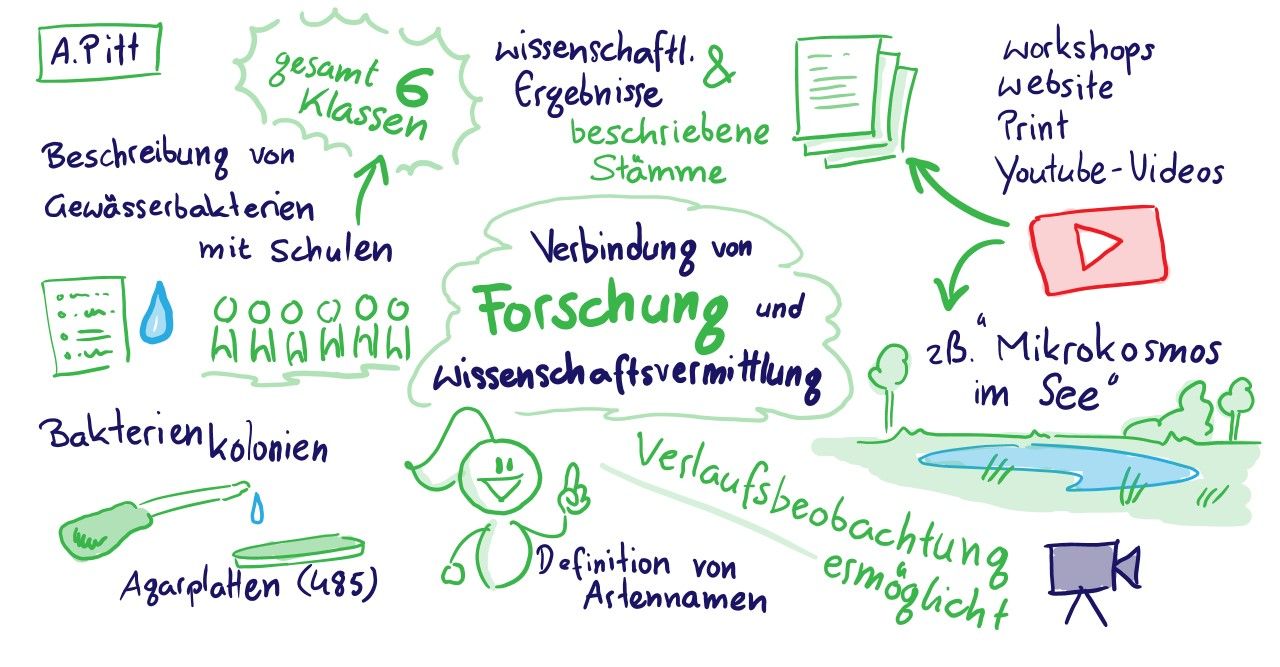 A. Pitt
gesamt 6
Klassen
wissenschaftl. &
Ergebnisse
beschriebene
Stämme
workshops
website
Print
Youtube-Videos
Beschreibung von
Gewässerbakterien
mit Schulen
Verbindung von
Forschung und
wissenschaftsvermittlung
zB. "Mikrokosmos
im See"
Bakterienkolonien
Agarplatten (485)
Definition von
Artennamen
Verlaufsbeobachtung
ermöglicht